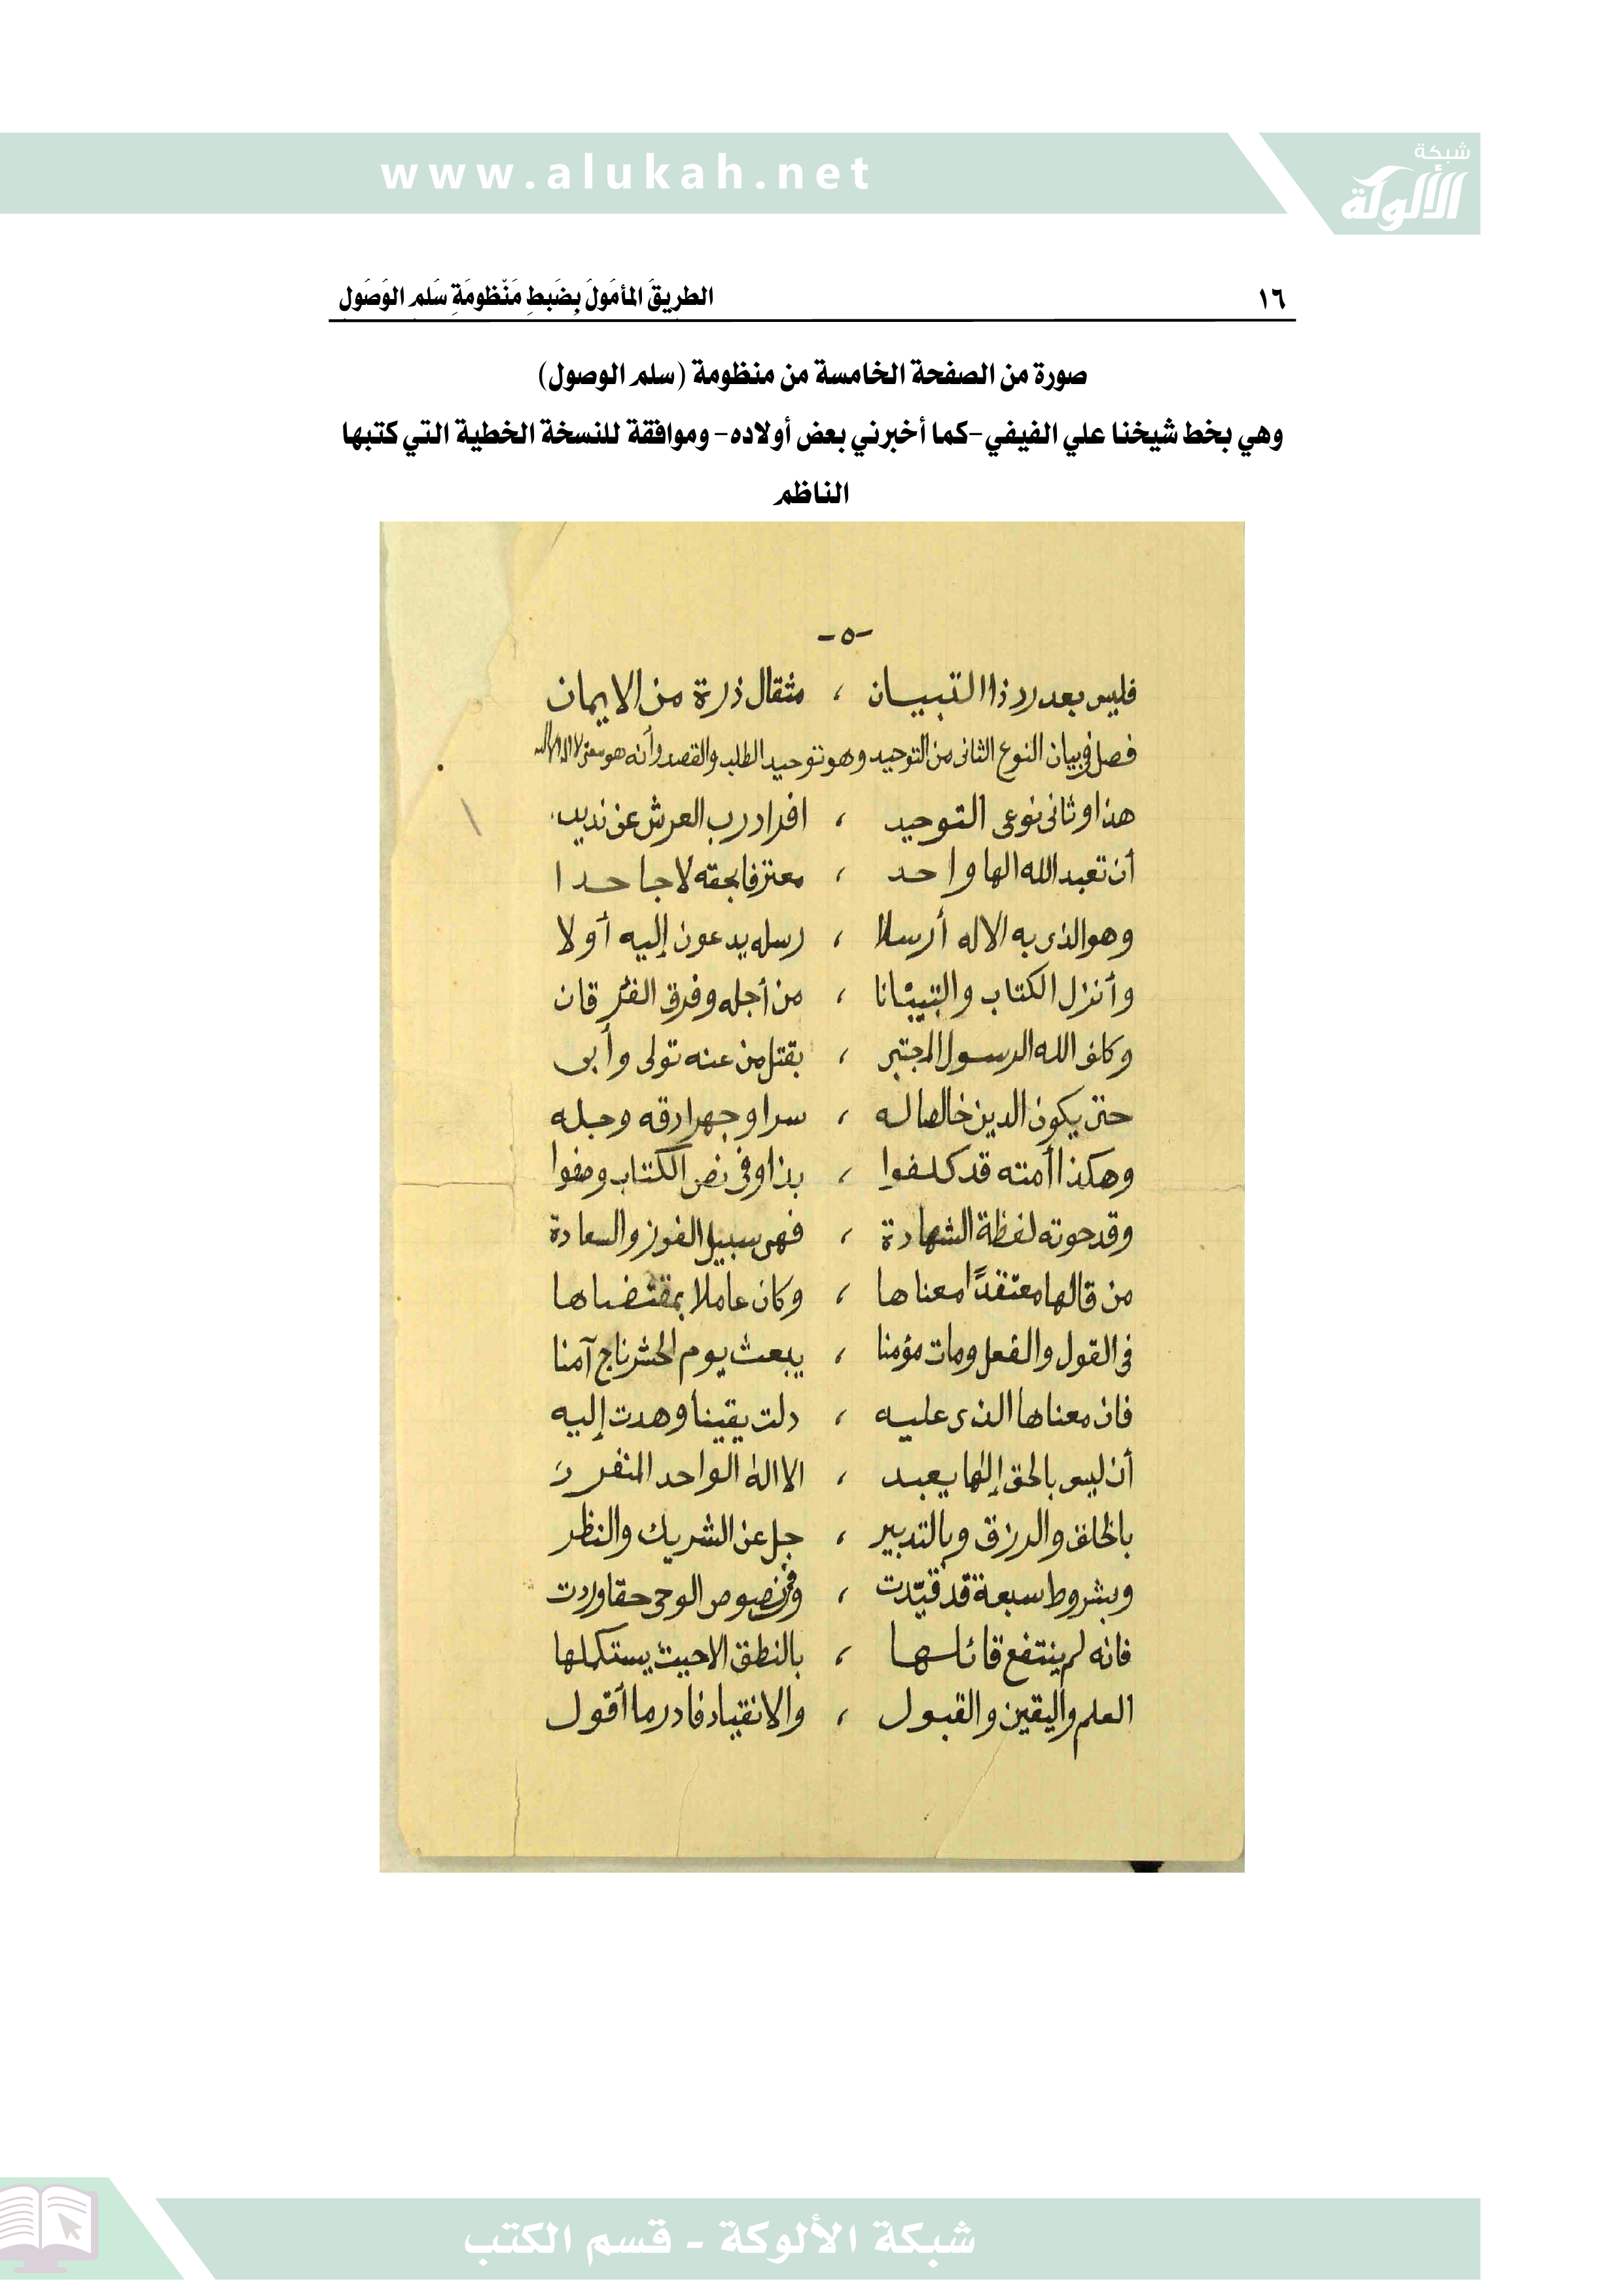 www.alukah.net
شبكة
الألوكة
١٦
الطريق المأمول بضبط منظومة سلم الوصول
صورة من الصفحة الخامسة من منظومة (سلم الوصول)
وهي بخط شيخنا علي الفيفي -كما أخبرني بعض أولاده- وموافقة للنسخة الخطية التي كتبها
الناظم
-٥-
فليس بعد رد ذا التبيان ، مثقال ذرة من الايمان
فصل في بيان النوع الثانى من التوحيد وهو توحيد الطلب والقصد وأنه هو معنى لا اله الا الله
هذا وثانى نوعى التوحيد ، افراد رب العرش عن نديد
أن تعبد الله الها واحد ، معترفا بحقه لا جاحدا
وهو الذى به الاله أرسلا ، رسله يدعون إليه أولا
وأنزل الكتاب والتبيانا ، من أجله وفرق الفرقان
وكلف الله الرسول المجتبى ، بقتل من عنه تولى وأبى
حتى يكون الدين خالصا له ، سرا وجهرا دقه وجله
وهكذا أمته قد كلفوا ، بذا وفى نص الكتاب وصفوا
وقد حوته لفظة الشهادة ، فهى سبيل الفوز والسعادة
من قالها معتقدًا معناها ، وكان عاملا بمقتضاها
فى القول والفعل ومات مؤمنا ، يبعث يوم الحشر ناج آمنا
فان معناها الذى عليه ، دلت يقينا وهدت إليه
أن ليس بالحق إلها يعبد ، الا اله الواحد المنفرد
بالخلق والرزق وبالتدبير ، جل عن الشريك والنظر
وبشروط سبعة قد قيّدت ، وفى نصوص الوحى حقا وردت
فانه لم ينتفع قائلها ، بالنطق الا حيث يستكملها
العلم واليقين والقبول ، والانقياد فادر ما أقول
شبكة الألوكة - قسم الكتب